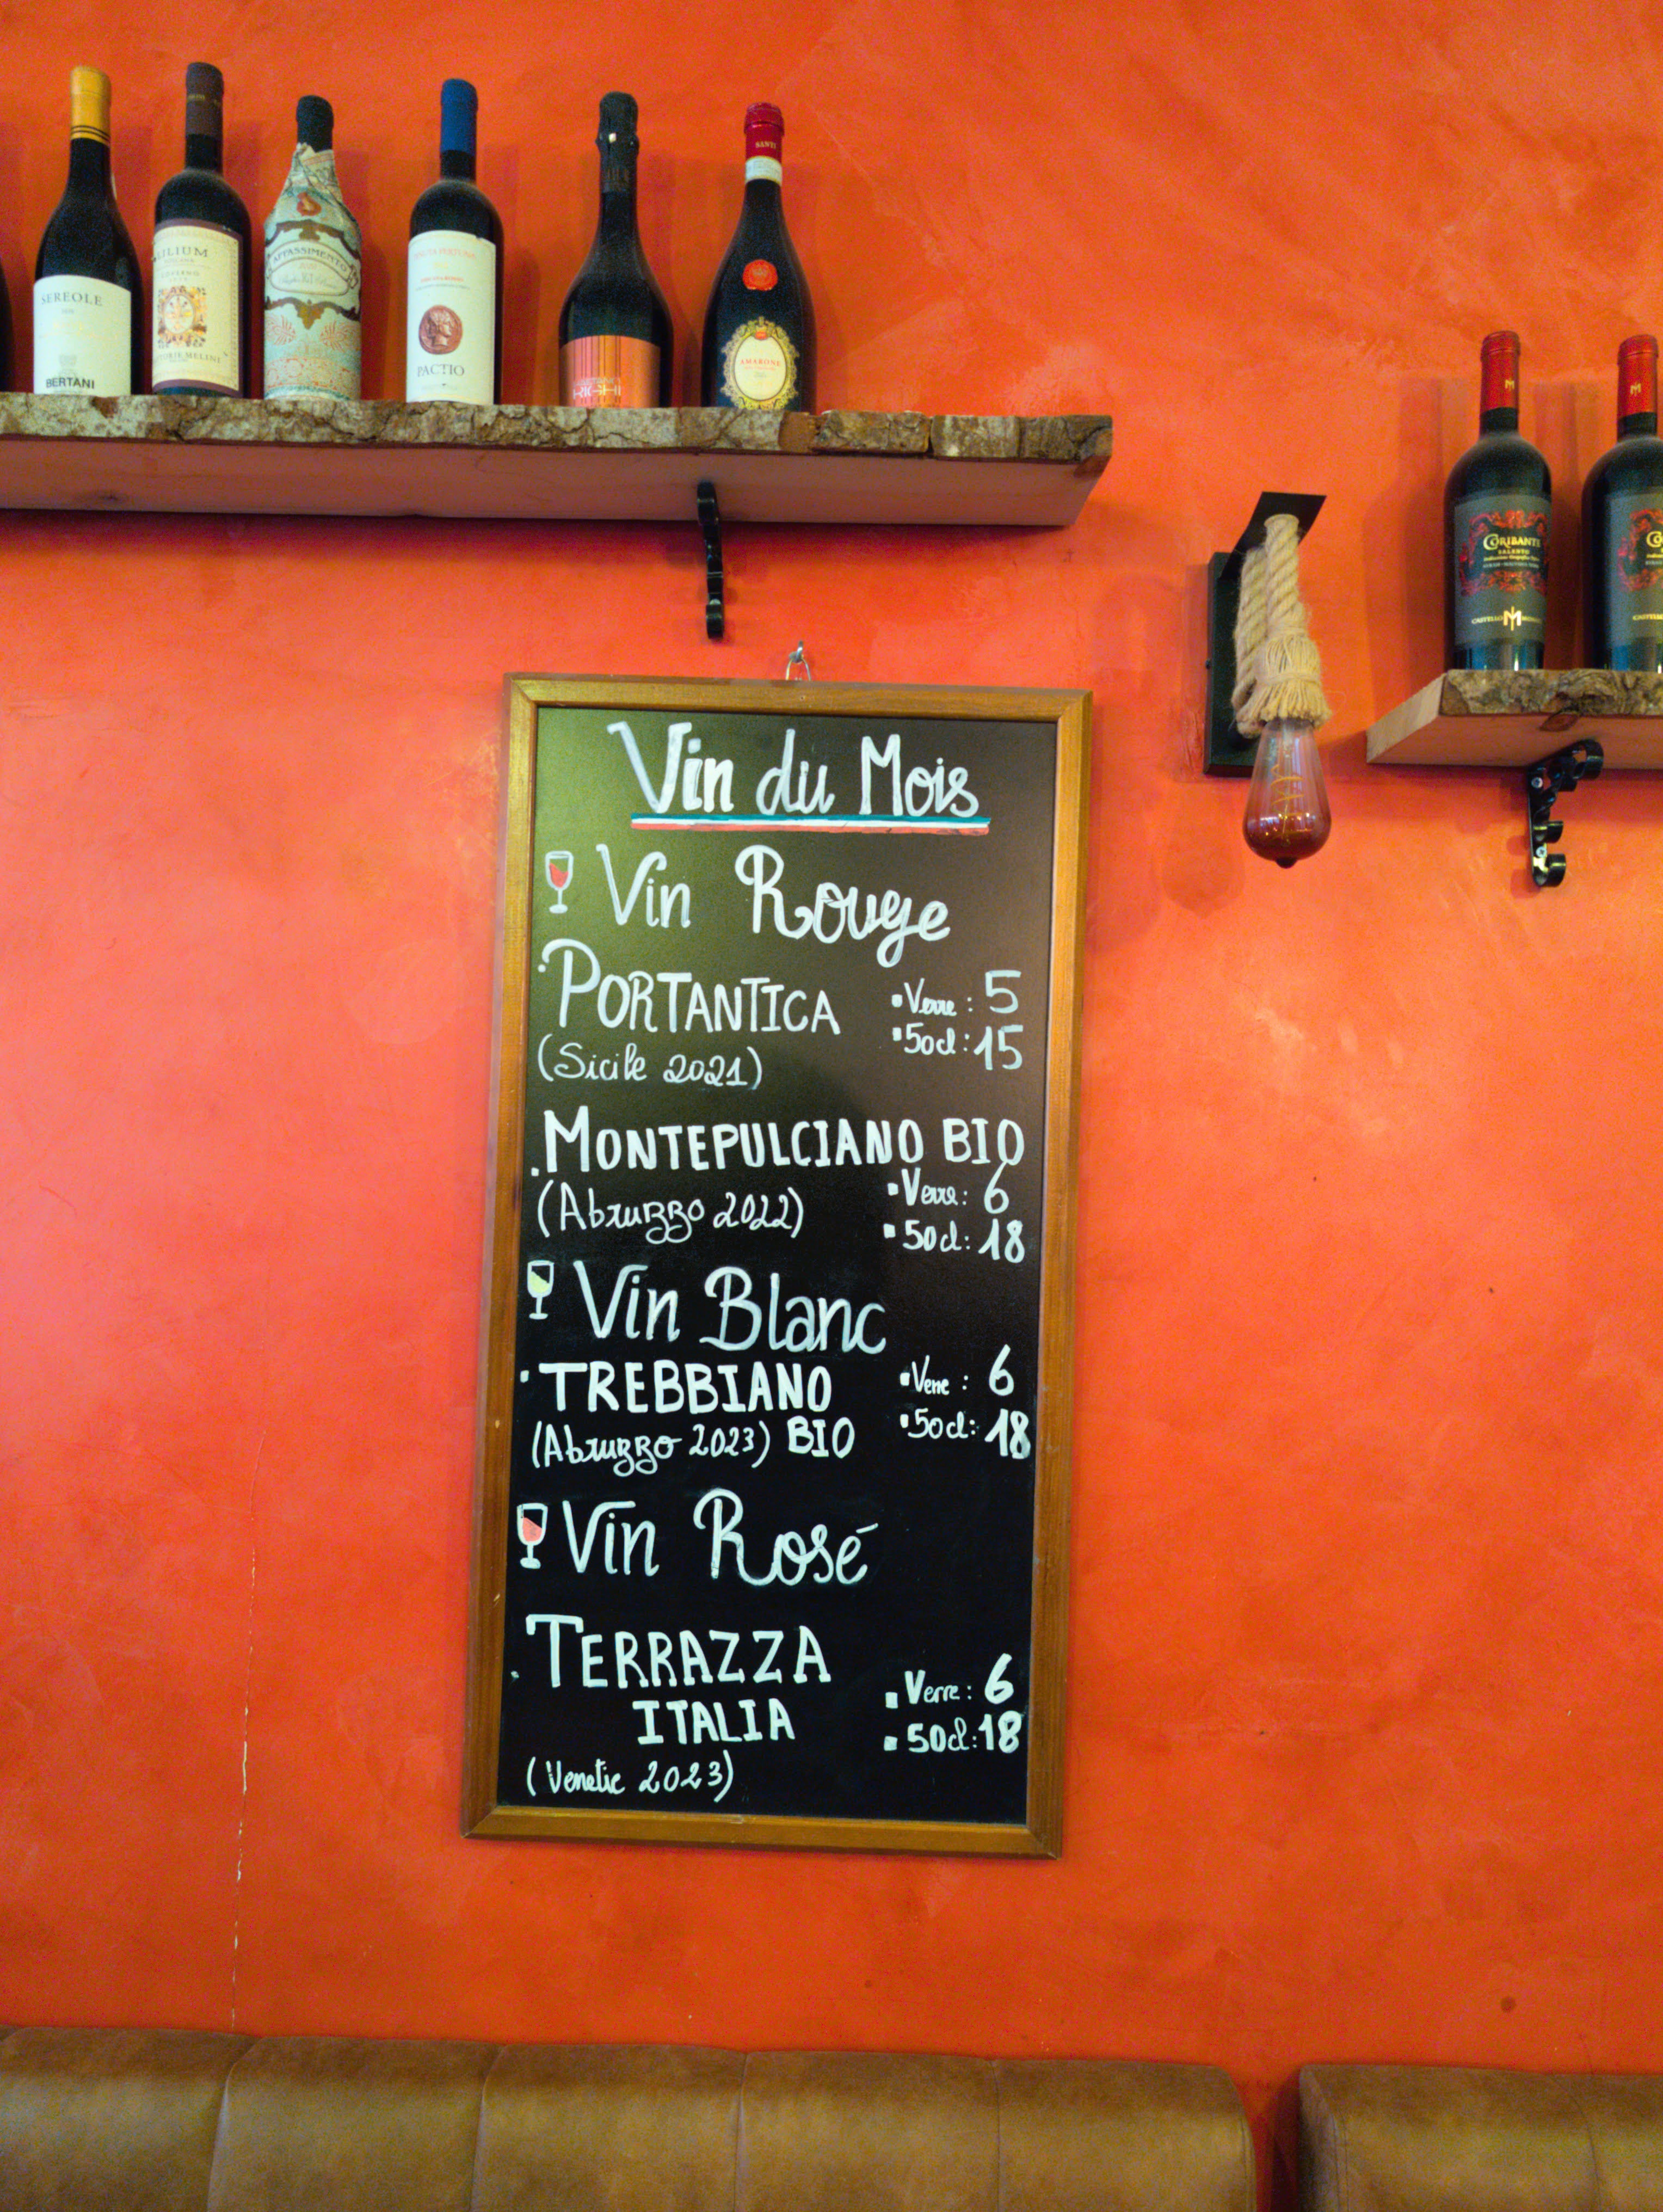 SANTI
SEREOLE
BERTANI
APPASSIMENTO
PACTIO
AMARONE
CORIBANTE
SALENTO
CASTELLO
Vin du Mois
Vin Rouge
PORTANTICA
• Verre : 5
(Sicile 2021)
• 50cl : 15
. MONTEPULCIANO BIO
(Abruzzo 2022)
• Verre : 6
• 50cl : 18
Vin Blanc
• TREBBIANO
• Verre : 6
(Abruzzo 2023) BIO
• 50cl : 18
Vin Rosé
. TERRAZZA
ITALIA
• Verre : 6
• 50cl : 18
(Venetie 2023)